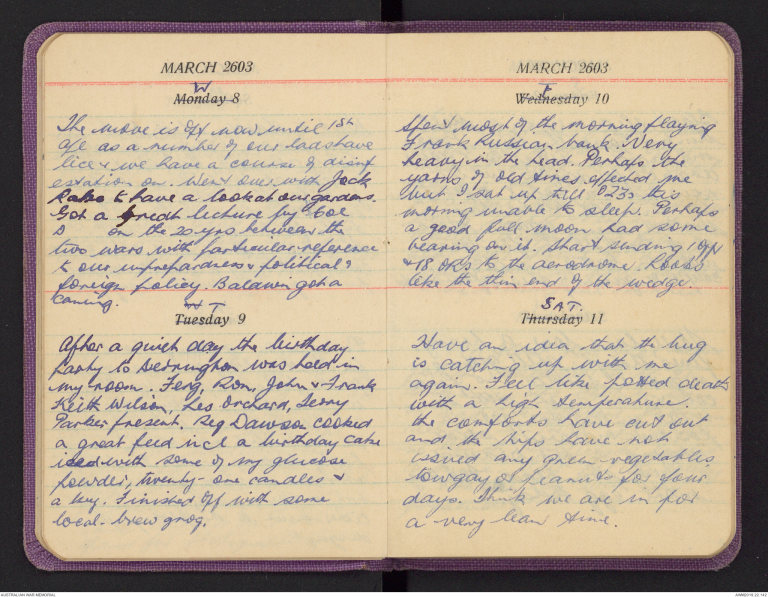 MARCH 2603
W
Monday 8
The move is off now until 1st
as a number of our lads have
lice & we have a course of disinf
estation on. Went over with Jack
to have a look at our gardens.
Got a great lecture by Col
D on the 20 yrs between the
two wars with particular reference
to our unpreparedness & political &
foreign policy. Baldwin got a
caning.
T
Tuesday 9
After a quiet day the birthday
party to Derrington was held in
my room. Ferg, Ron, John & Frank
Keith Wilson, Les Orchard, Gerry
Parker present. Reg Dawson cooked
a great feed incl a birthday cake
iced with some of my glucose
powder, twenty-one candles &
a key. Finished off with some
local-brew grog.
MARCH 2603
F
Wednesday 10
Spent most of the morning playing
Frank Russian bank. Very
heavy in the head. Perhaps the
yarns of old times effected me
but I sat up till this
morning unable to sleep. Perhaps
a good full moon had some
bearing on it. Start sending 1 off
& 18 ORs to the aerodrome. Looks
like the thin end of the wedge.
SAT.
Thursday 11
Have an idea that the bug
is catching up with me
again. Feel like potted death
with a high temperature.
The comforts have cut out
and the Nips have not
issued any green vegetables,
towgay or peanuts for four
days. Think we are in for
a very lean time.
AUSTRALIAN WAR MEMORIAL